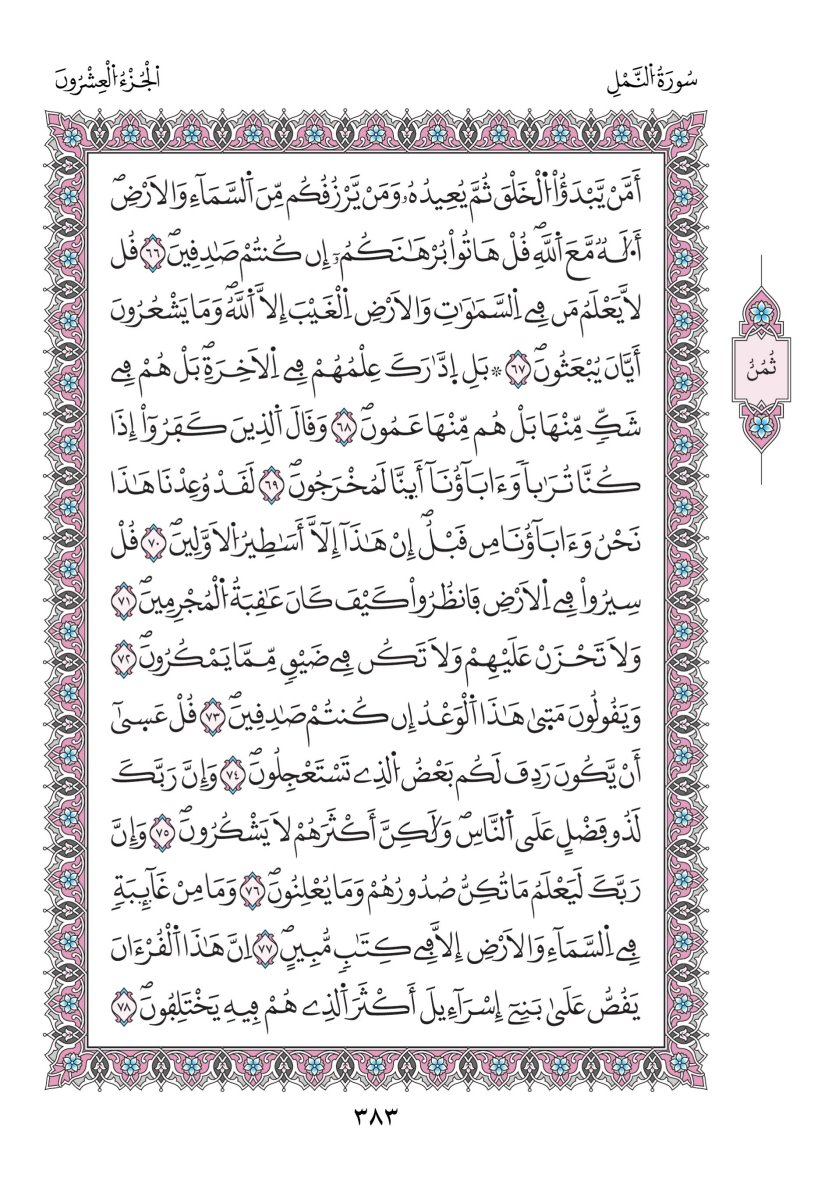 سُورَةُ اُ۬لنَّمْلِ
اَ۬لْجُزْءُ اُ۬لْعِشْرُونَ
أَمَّنْ يَّبْدَؤُاْ اُ۬لْخَلْقَ ثُمَّ يُعِيدُهُۥ وَمَنْ يَّرْزُقُكُم مِّنَ اَ۬لسَّمَآءِ وَالَارْضِۖ
أَ.لَٰهٞ مَّعَ اَ۬للَّهِۖ قُلْ هَاتُواْ بُرْهَٰنَكُمُۥٓ إِن كُنتُمْ صَٰدِقِينَۖ ٦٦ قُل
لَّا يَعْلَمُ مَن فِے اِ۬لسَّمَٰوَٰتِ وَالَارْضِ اِ۬لْغَيْبَ إِلَّا اَ۬للَّهُۖ وَمَا يَشْعُرُونَ
أَيَّانَ يُبْعَثُونَۖ ٦٧ ۞ بَلِ اِ۪دَّٰرَكَ عِلْمُهُمْ فِے اِ۬لَاخِرَةِۖ بَلْ هُمْ فِے
شَكّٖ مِّنْهَا بَلْ هُم مِّنْهَا عَمُونَۖ ٦٨ وَقَالَ اَ۬لذِينَ كَفَرُوٓاْ إِذَا
كُنَّا تُرَٰباٗ وَءَابَآؤُنَآ أَىِٕنَّا لَمُخْرَجُونَۖ ٦٩ لَقَدْ وُعِدْنَا هَٰذَا
نَحْنُ وَءَابَآؤُنَا مِن قَبْلُۖ إِنْ هَٰذَآ إِلَّآ أَسَٰطِيرُ اُ۬لَاوَّلِينَۖ ٧٠ قُلْ
سِيرُواْ فِے اِ۬لَارْضِ فَانظُرُواْ كَيْفَ كَانَ عَٰقِبَةُ اُ۬لْمُجْرِمِينَۖ ٧١
وَلَا تَحْزَنْ عَلَيْهِمْ وَلَا تَكُن فِے ضَيْقٖ مِّمَّا يَمْكُرُونَۖ ٧٢
وَيَقُولُونَ مَت۪يٰ هَٰذَا اَ۬لْوَعْدُ إِن كُنتُمْ صَٰدِقِينَۖ ٧٣ قُلْ عَس۪يٰٓ
أَنْ يَّكُونَ رَدِفَ لَكُم بَعْضُ اُ۬لذِے تَسْتَعْجِلُونَۖ ٧٤ وَإِنَّ رَبَّكَ
لَذُو فَضْلٍ عَلَي اَ۬لنَّاسِۖ وَلَٰكِنَّ أَكْثَرَهُمْ لَا يَشْكُرُونَۖ ٧٥ وَإِنَّ
رَبَّكَ لَيَعْلَمُ مَا تُكِنُّ صُدُورُهُمْ وَمَا يُعْلِنُونَۖ ٧٦ وَمَا مِنْ غَآئِبَةٖ
فِے اِ۬لسَّمَآءِ وَالَارْضِ إِلَّا فِے كِتَٰبٖ مُّبِينٍۖ ٧٧ اِنَّ هَٰذَا اَ۬لْقُرْءَانَ
يَقُصُّ عَلَيٰ بَنِےٓ إِسْرَآءِيلَ أَكْثَرَ اَ۬لذِے هُمْ فِيهِ يَخْتَلِفُونَۖ ٧٨
ثُمُنُ
٣٨٣